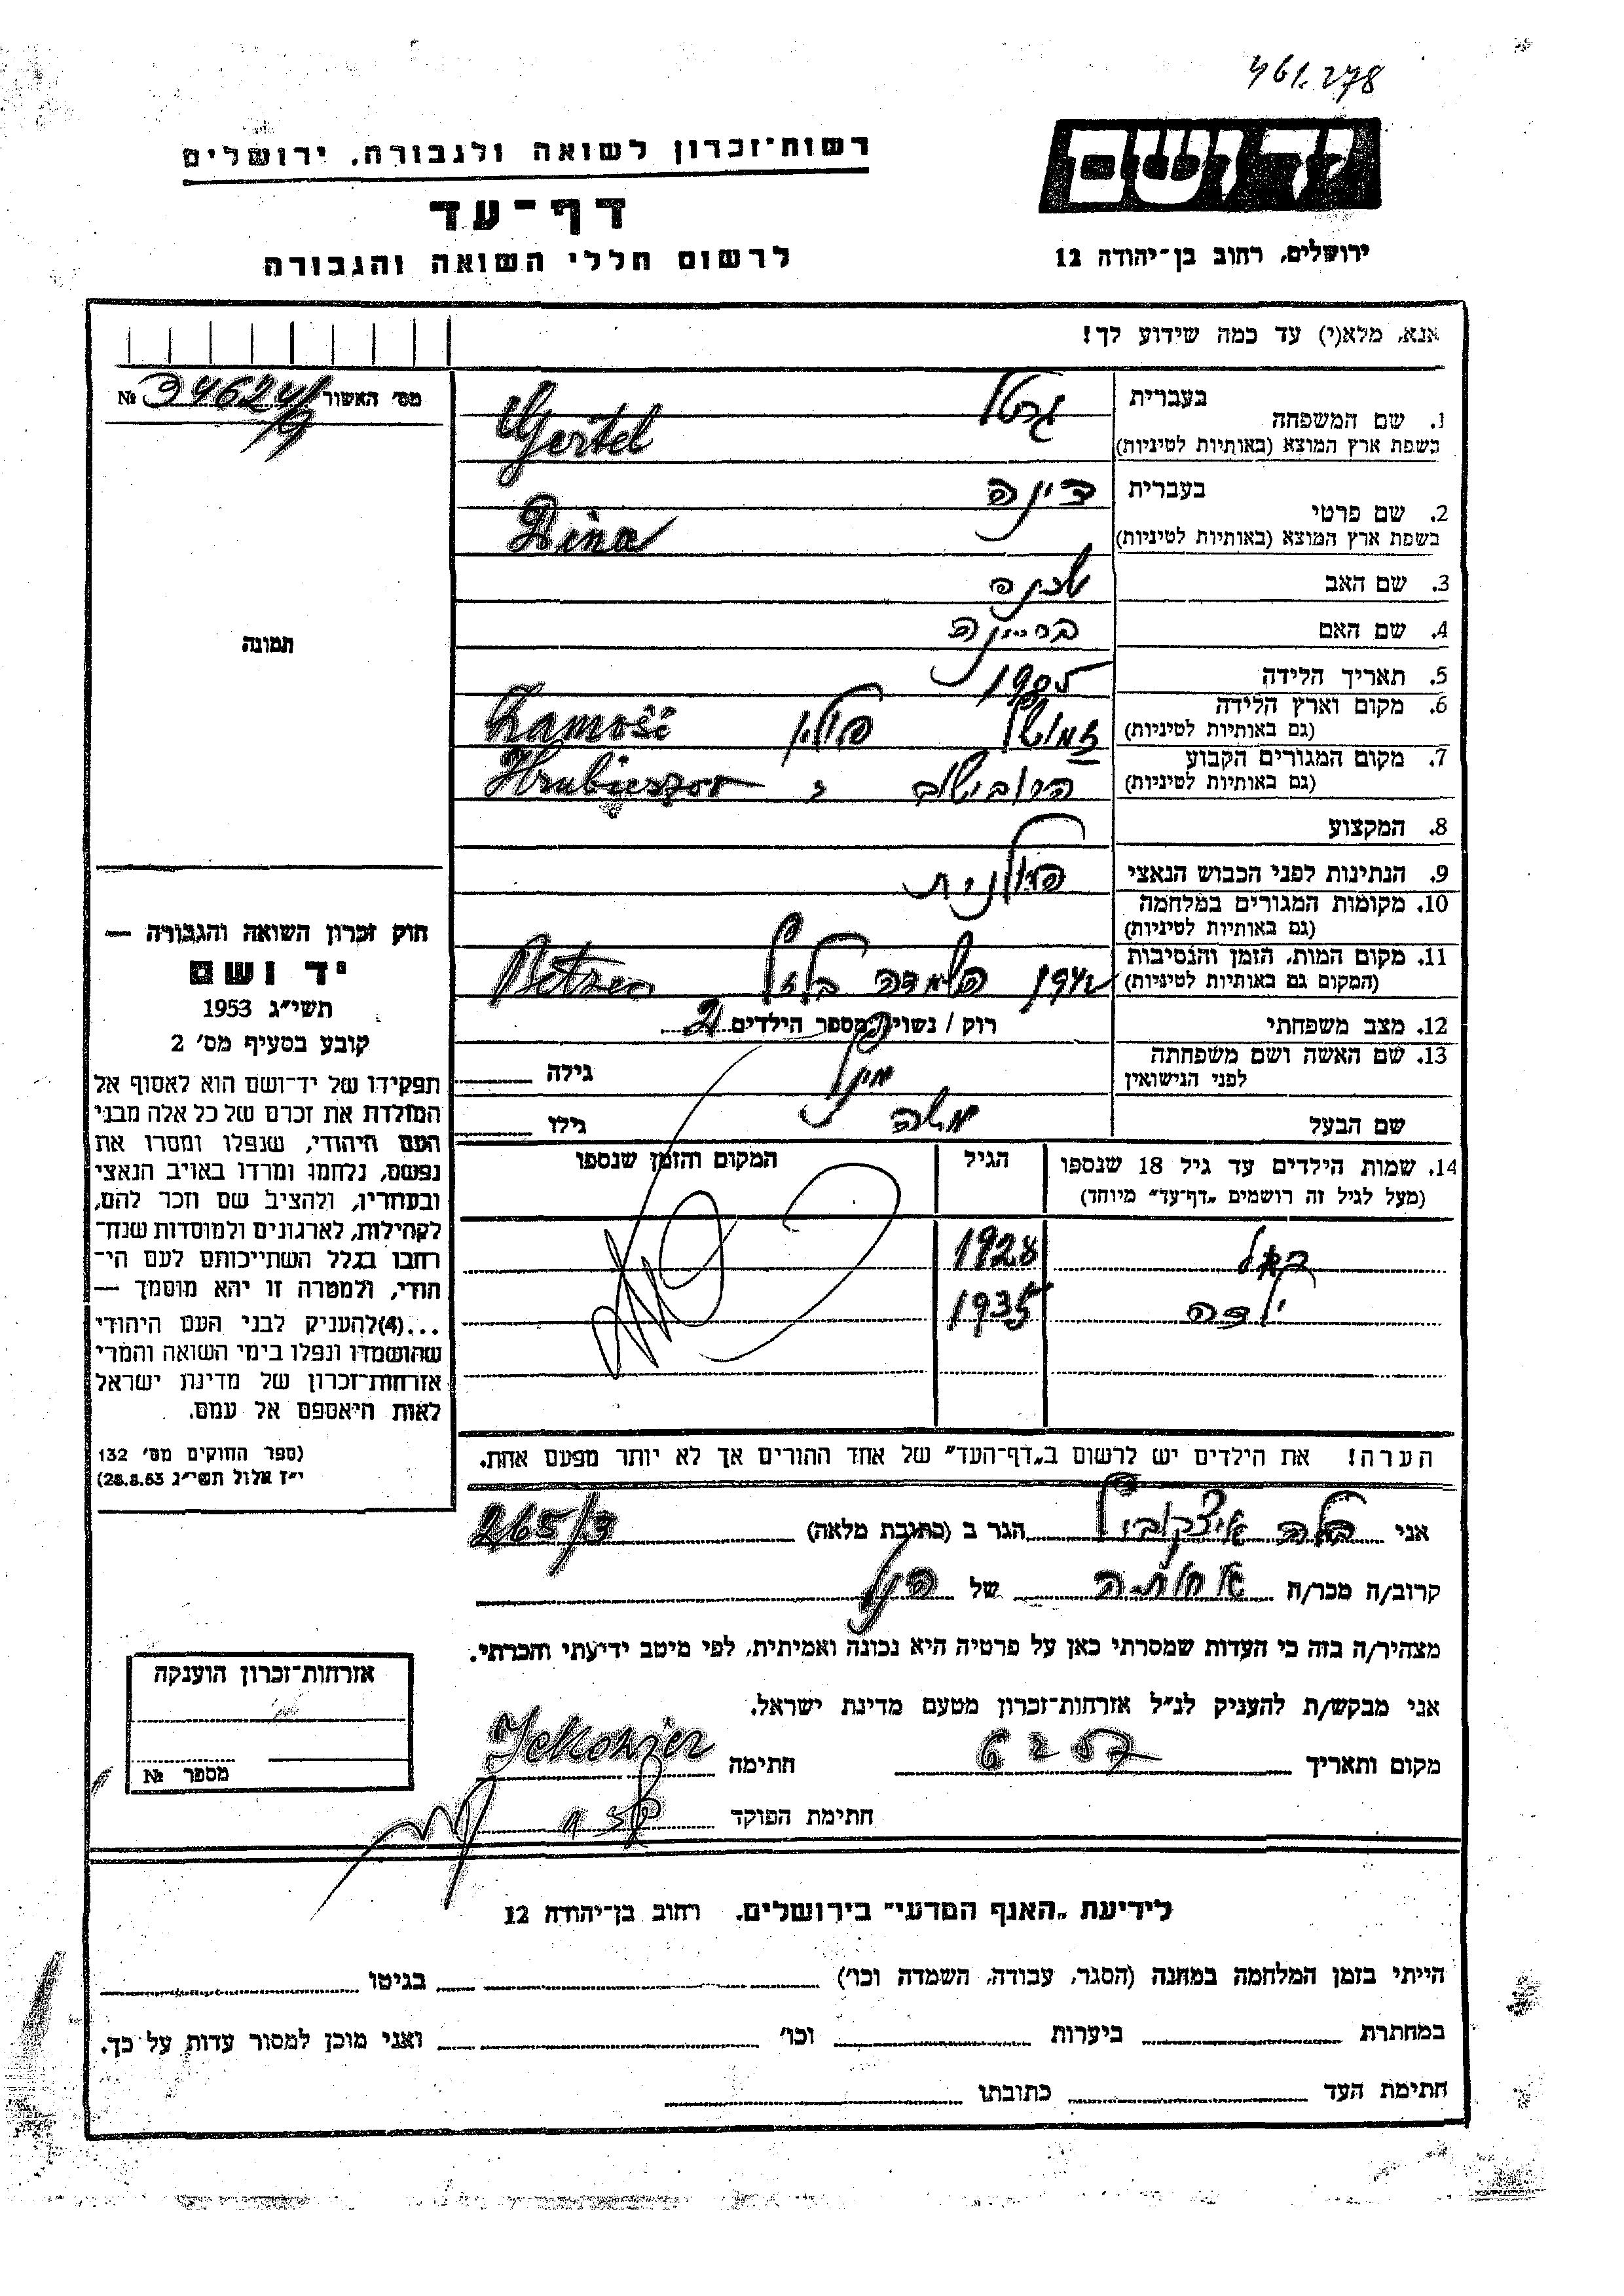 461.278
יד ושם
רשות־זכרון לשואה ולגבורה, ירושלים
דף־עד
לרשום חללי השואה והגבורה
ירושלים, רחוב בן־יהודה 12
אנא, מלא(י) עד כמה שידוע לך!
מס׳ האשור № 34624/
1. שם המשפחה
בעברית גרטל
בשפת ארץ המוצא (באותיות לטיניות) Gertel
2. שם פרטי
בעברית דינה
בשפת ארץ המוצא (באותיות לטיניות) Dina
3. שם האב שכנה
4. שם האם
5. תאריך הלידה 1905
6. מקום וארץ הלידה
(גם באותיות לטיניות) זמושץ פולין Zamość
7. מקום המגורים הקבוע
(גם באותיות לטיניות) הרובישוב Hrubieszow
8. המקצוע
9. הנתינות לפני הכבוש הנאצי פולנית
10. מקומות המגורים במלחמה
(גם באותיות לטיניות)
11. מקום המות, הזמן והנסיבות
(המקום גם באותיות לטיניות) 1942 השמדה
12. מצב משפחתי רוק / נשוי / מספר הילדים 2
13. שם האשה ושם משפחתה
לפני הנישואין גילה
שם הבעל משה גילו
14. שמות הילדים עד גיל 18 שנספו
(מעל לגיל זה רושמים „דף־עד״ מיוחד)
הגיל
המקום והזמן שנספו
1928
ילדה 1935
הערה! את הילדים יש לרשום ב„דף־העד״ של אחד ההורים אך לא יותר מפעם אחת.
תמונה
חוק זכרון השואה והגבורה —
יד ושם
תשי״ג 1953
קובע בסעיף מס׳ 2
תפקידו של יד־ושם הוא לאסוף אל
המולדת את זכרם של כל אלה מבני
העם היהודי, שנפלו ומסרו את
נפשם, נלחמו ומרדו באויב הנאצי
ובעוזריו, ולהציב שם וזכר להם,
לקהילות, לארגונים ולמוסדות שנח־
רחבו בגלל השתייכותם לעם הי־
הודי, ולמטרה זו יהא מוסמך —
...(4)להעניק לבני העם היהודי
שהושמדו ונפלו בימי השואה והמרי
אזרחות־זכרון של מדינת ישראל
לאות היאספם אל עמם.
(ספר החוקים מס׳ 132
י״ז אלול תשי״ג 28.8.53)
אני בלה איצקוביץ הגר ב (כתובת מלאה) 265/3
קרוב/ה מכר/ה אחותה של הנ״ל
מצהיר/ה בזה כי העדות שמסרתי כאן על פרטיה היא נכונה ואמיתית, לפי מיטב ידיעתי והכרתי.
אני מבקש/ת להעניק לנ״ל אזרחות־זכרון מטעם מדינת ישראל.
מקום ותאריך 6 2 57 חתימה
חתימת הפוקד
אזרחות־זכרון הוענקה
מספר №
לידיעת „האגף המדעי״ בירושלים, רחוב בן־יהודה 12
הייתי בזמן המלחמה במחנה (הסגר, עבודה, השמדה וכו׳) בגיטו
במחתרת ביערות וכו׳ ואני מוכן למסור עדות על כך.
חתימת העד כתובתו